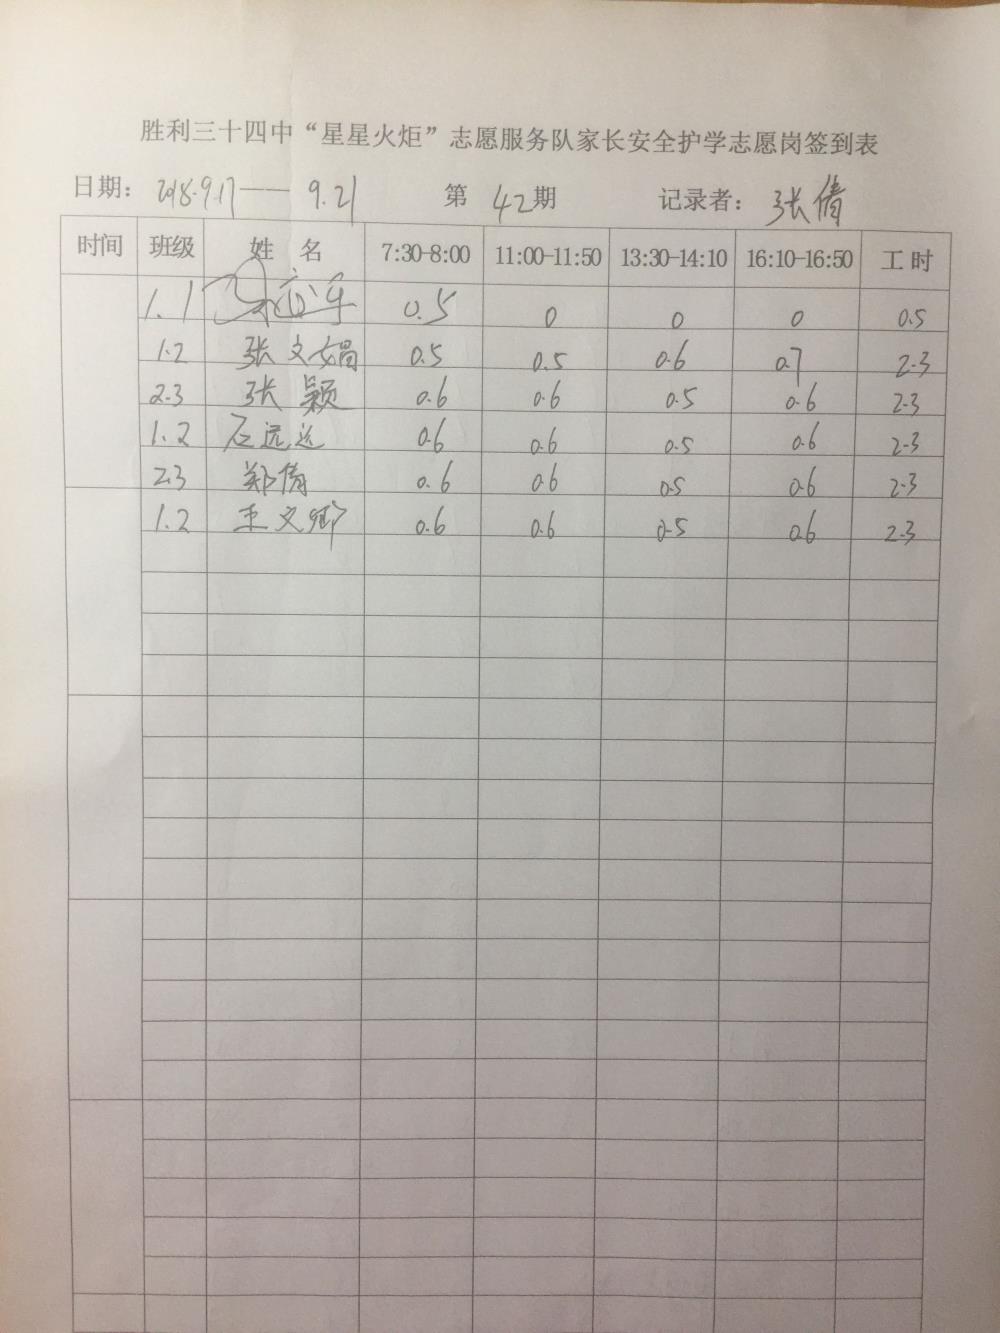 胜利三十四中“星星火炬”志愿服务队家长安全护学志愿岗签到表
日期：2018.9.17—— 9.21 第 42期 记录者：张倩
时间 班级 姓 名 7:30-8:00 11:00-11:50 13:30-14:10 16:10-16:50 工 时
1.1 0.5 0 0 0 0.5
1.2 张文娟 0.5 0.5 0.6 0.7 2.3
2.3 张颖 0.6 0.6 0.5 0.6 2.3
1.2 石远达 0.6 0.6 0.5 0.6 2.3
2.3 郑倩 0.6 0.6 0.5 0.6 2.3
1.2 王文卿 0.6 0.6 0.5 0.6 2.3